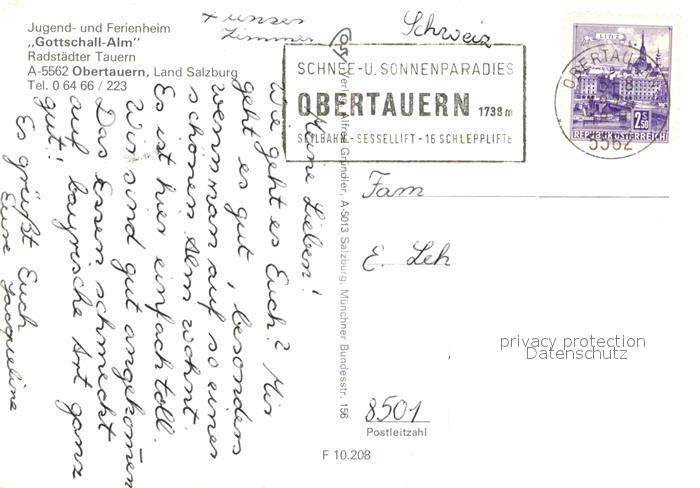 Jugend- und Ferienheim
„Gottschall-Alm"
Radstädter Tauern
A-5562 Obertauern, Land Salzburg
Tel. 0 64 66 / 223
+ unser
Zimmer
Meine Lieben!
Wie geht es Euch? Mir
geht es gut, besonders
wenn man auf so einer
schönen Alm wohnt.
Es ist hier einfach toll.
Wir sind gut angekommen
Das Essen schmeckt
auf bayrische Art ganz
gut!
Es grüßt Euch
Eure Jacqueline
Verlag Alfred Gründler, A-5013 Salzburg, Münchner Bundesstr. 156
Schweiz
SCHNEE-U. SONNENPARADIES
OBERTAUERN 1738 m
SEILBAHN - SESSELLIFT - 16 SCHLEPPLIFTE
OBERTAUERN
5562
LINZ
2.50
REPUBLIK ÖSTERREICH
Fam
E. Leh
privacy protection
Datenschutz
8501
Postleitzahl
F 10.208